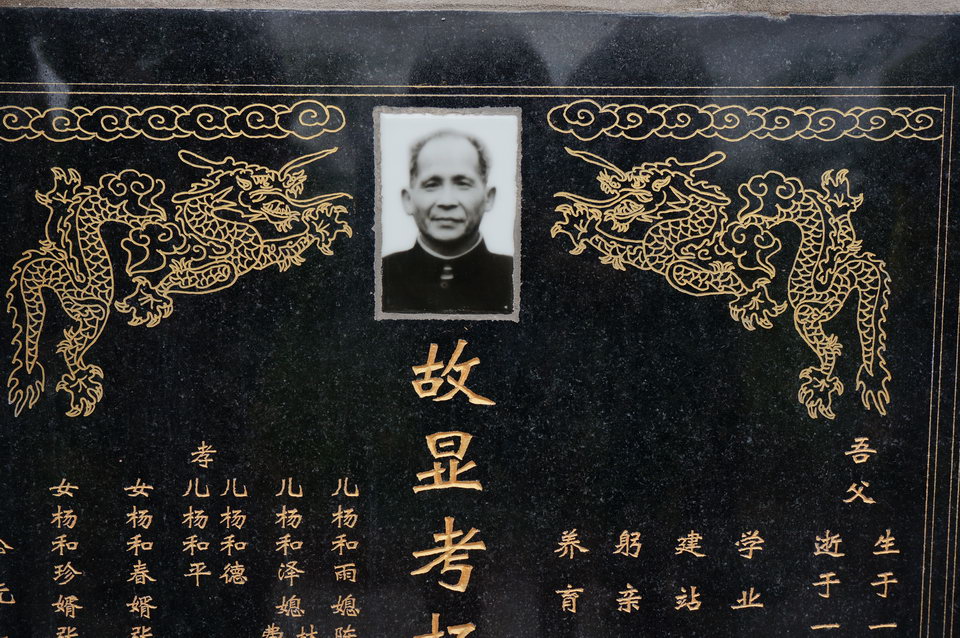 吾父
生于一
逝于一
学业
建站
躬亲
养育
故显考
孝
儿杨和雨媳陈
儿杨和泽媳
儿杨和德
儿杨和平
女杨和春婿张
女杨和珍婿张